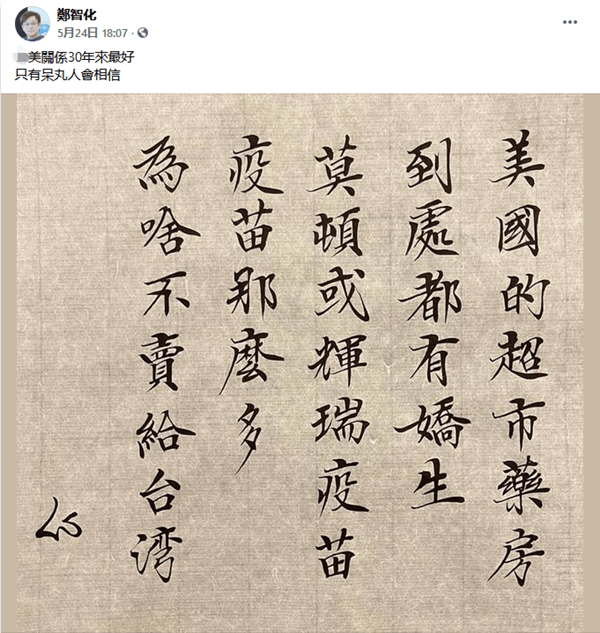 鄭智化
5月24日 18:07
美關係30年來最好
只有呆丸人會相信
美國的超市藥房
到處都有嬌生
莫頓或輝瑞疫苗
疫苗那麼多
為啥不賣給台湾